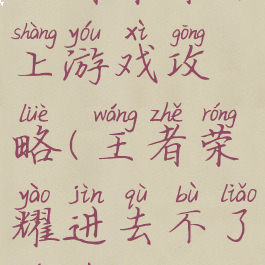 shàng yóu xì gōng
上游戏攻
lüè wáng zhě róng
略(王者荣
yào jìn qù bù liǎo
耀进去不了